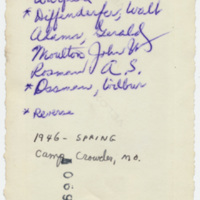 * Diffenderfer, Walt
Adams, Gerald
Moulton, John W
Rosman A. S.
* Dosman, Wilbur
* Reverse
1946 - SPRING
Camp Crowder, MO.